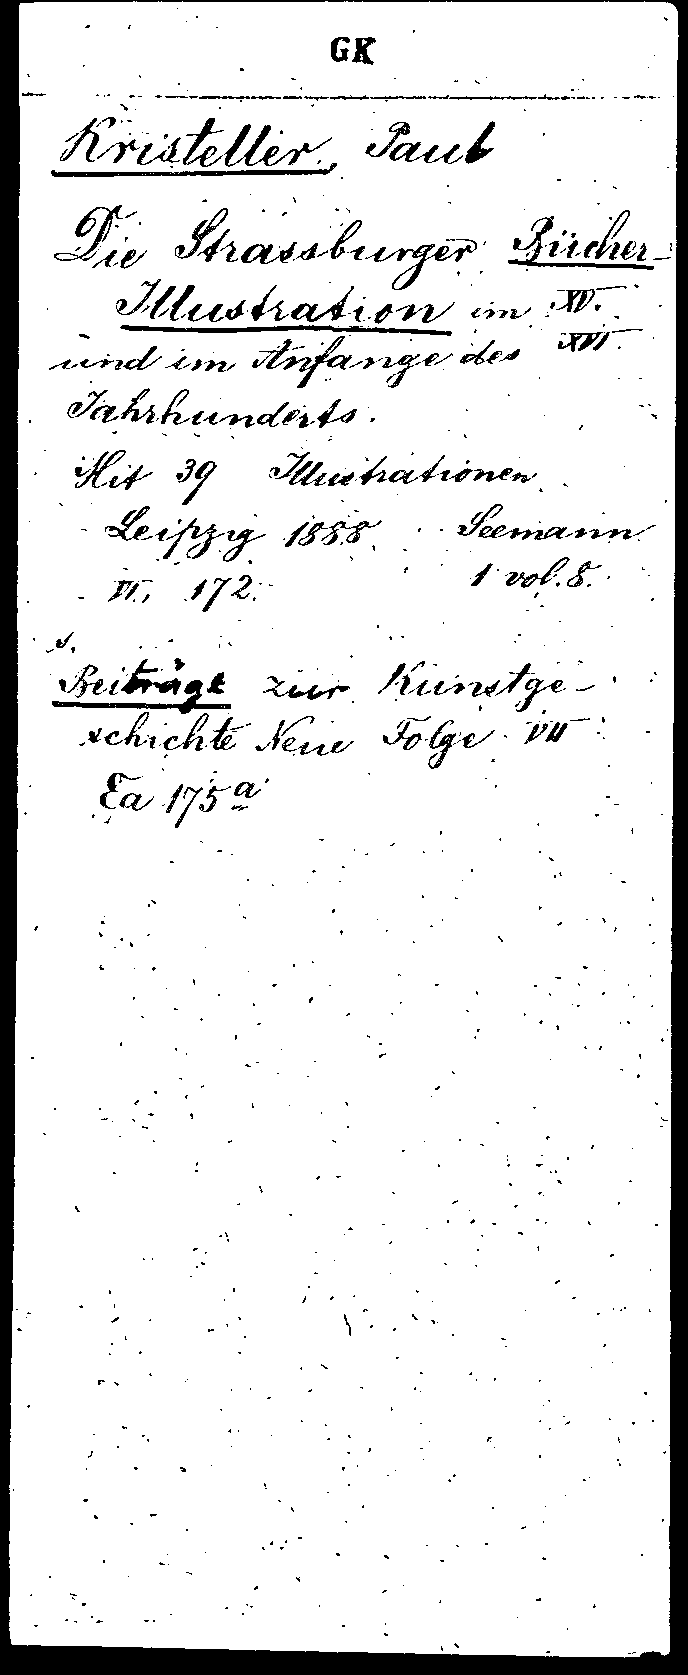 GK
Kristeller, Paul
Die Strassburger Bücher-
Illustration im XV.
und im Anfange des XVI.
Jahrhunderts.
Mit 39 Illustrationen
Leipzig 1888. Seemann
VI, 172. 1 vol. 8.
s.
Beiträge zur Kunstge-
schichte Neue Folge VII
Ea 175a